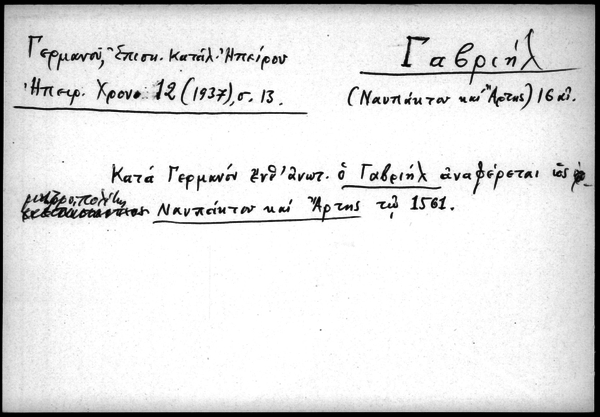 Γερμανοῦ, Ἐπισκ. Κατάλ. Ἠπείρου
Ἠπειρ. Χρον. 12 (1937), σ. 13.
Γαβριήλ
(Ναυπάκτου καὶ Ἄρτης) 16 αἰ.
Κατά Γερμανόν ἔνθ' ἀνωτ. ὁ Γαβριήλ ἀναφέρεται ὡς
μητροπολίτης Ναυπάκτου καί Ἄρτης τῷ 1561.